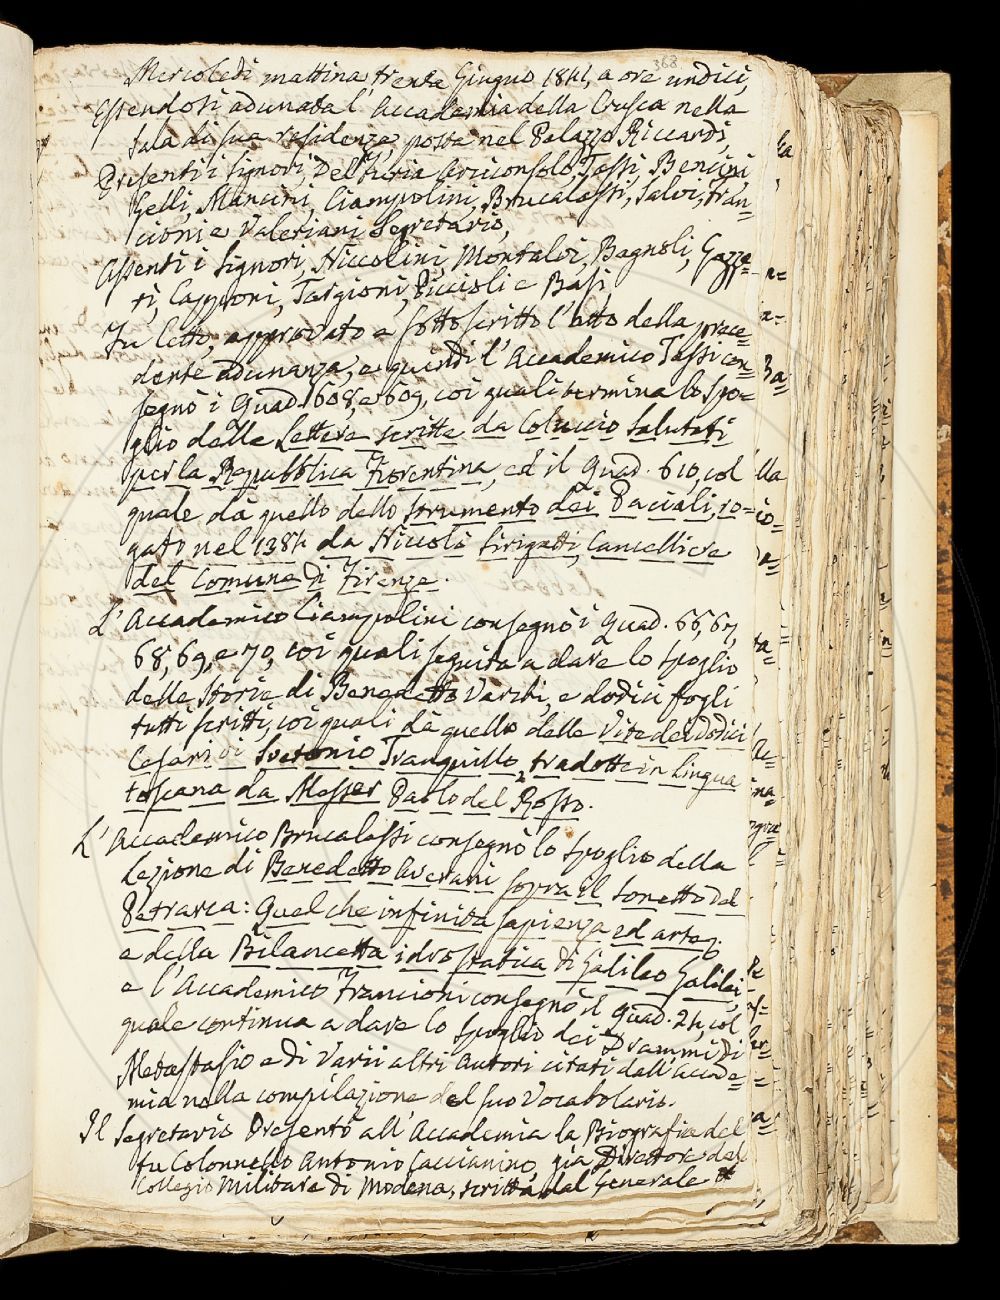 368
Mercoledì mattina, trenta Giugno 1841, a ore undici,
Essendosi adunata l'Accademia della Crusca nella
Sala di sua residenza, posta nel Palazzo Riccardi,
Presenti i Signori, Del Furia Arciconsolo, Tassi, Bencini,
Gelli, Mancini, Ciampolini, Brucalassi, Salvi, Fran=
cioni e Valeriani Segretario,
Assenti i Signori, Niccolini, Montalvi, Bagnoli, Gazze=
ri, Capponi, Targioni, Puccioli e Basi
Fu letto, approvato e sottoscritto l'Atto della prece=
dente adunanza, e quindi l'Accademico Tassi con=
segnò i Quad. 608, e 609, coi quali termina lo Spo=
glio delle Lettere scritte da Coluccio Salutati
per la Repubblica Fiorentina, ed il Quad. 610, col
quale dà quello dello Strumento dei Paciali, ro=
gato nel 1384 da Niccolò Sirigatti, Cancelliere
del Comune di Firenze.
L'Accademico Ciampolini consegnò i Quad. 66, 67,
68, 69, e 70, coi quali seguita a dare lo Spoglio
delle Storie di Benedetto Varchi, e dodici fogli
tutti scritti, coi quali dà quello delle Vite dei Dodici
Cesari di Svetonio Tranquillo, tradotte in Lingua
toscana da Messer Paolo del Rosso.
L'Accademico Brucalassi consegnò lo Spoglio della
Lezione di Benedetto Averani sopra il Sonetto del
Petrarca: Quel che infinita sapienza ed arte,
e della Bilancetta idrostatica di Galileo Galilei,
e l'Accademico Francioni consegnò il Quad. 24, col
quale continua a dare lo Spoglio dei Drammi di
Metastasio e di Varii altri Autori citati dall'Accade=
mia nella compilazione del suo Vocabolario.
Il Segretario Presentò all'Accademia la Biografia del
fu Colonnello Antonio Caccianino, già Direttore del
Collegio Militare di Modena, scritta dal Generale